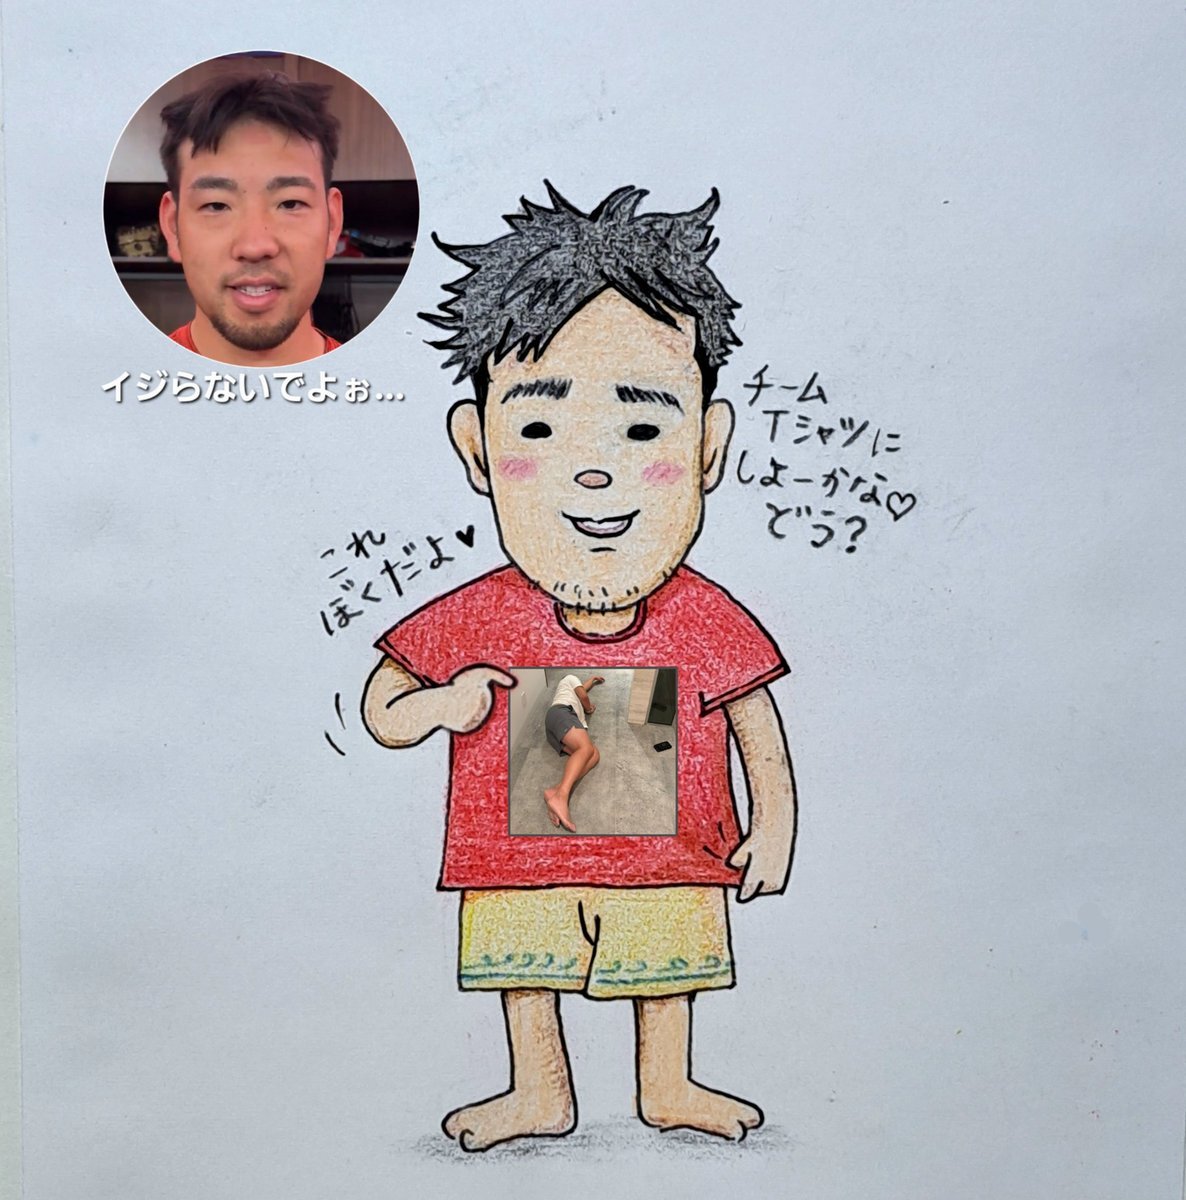 イジらないでよぉ...
チーム
Tシャツに
しよーかな♡
どう?
これ
ぼくだよ♥